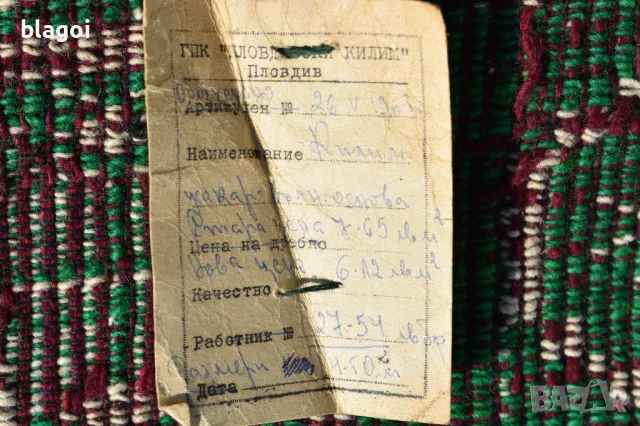 blagoi
ТПК "ПЛОВДИВСКИ КИЛИМ"
Пловдив
Артикулен № 26 V 1963
Наименование Килим
жакард основа
Стара цена 7.65 лв м²
Цена на дребно
Нова цена 6.12 лв м²
Качество
27-54 лв бр
Работник №
Размери 4.50 м²
Дата
BAZAR
bg